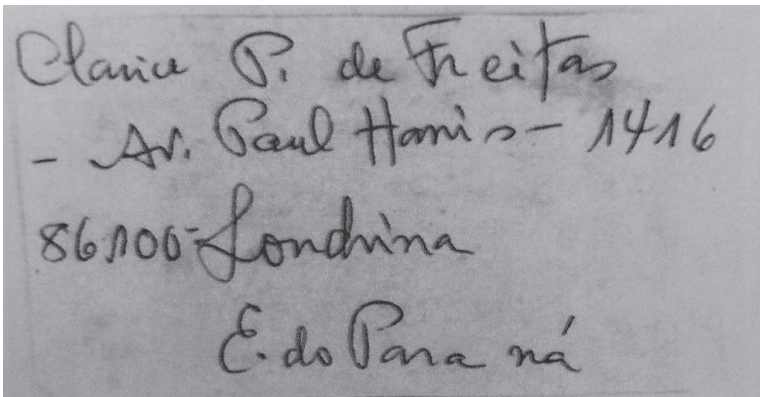 Clarice P. de Freitas
- Av. Paul Harris - 1416
86100-Londrina
E. do Paraná